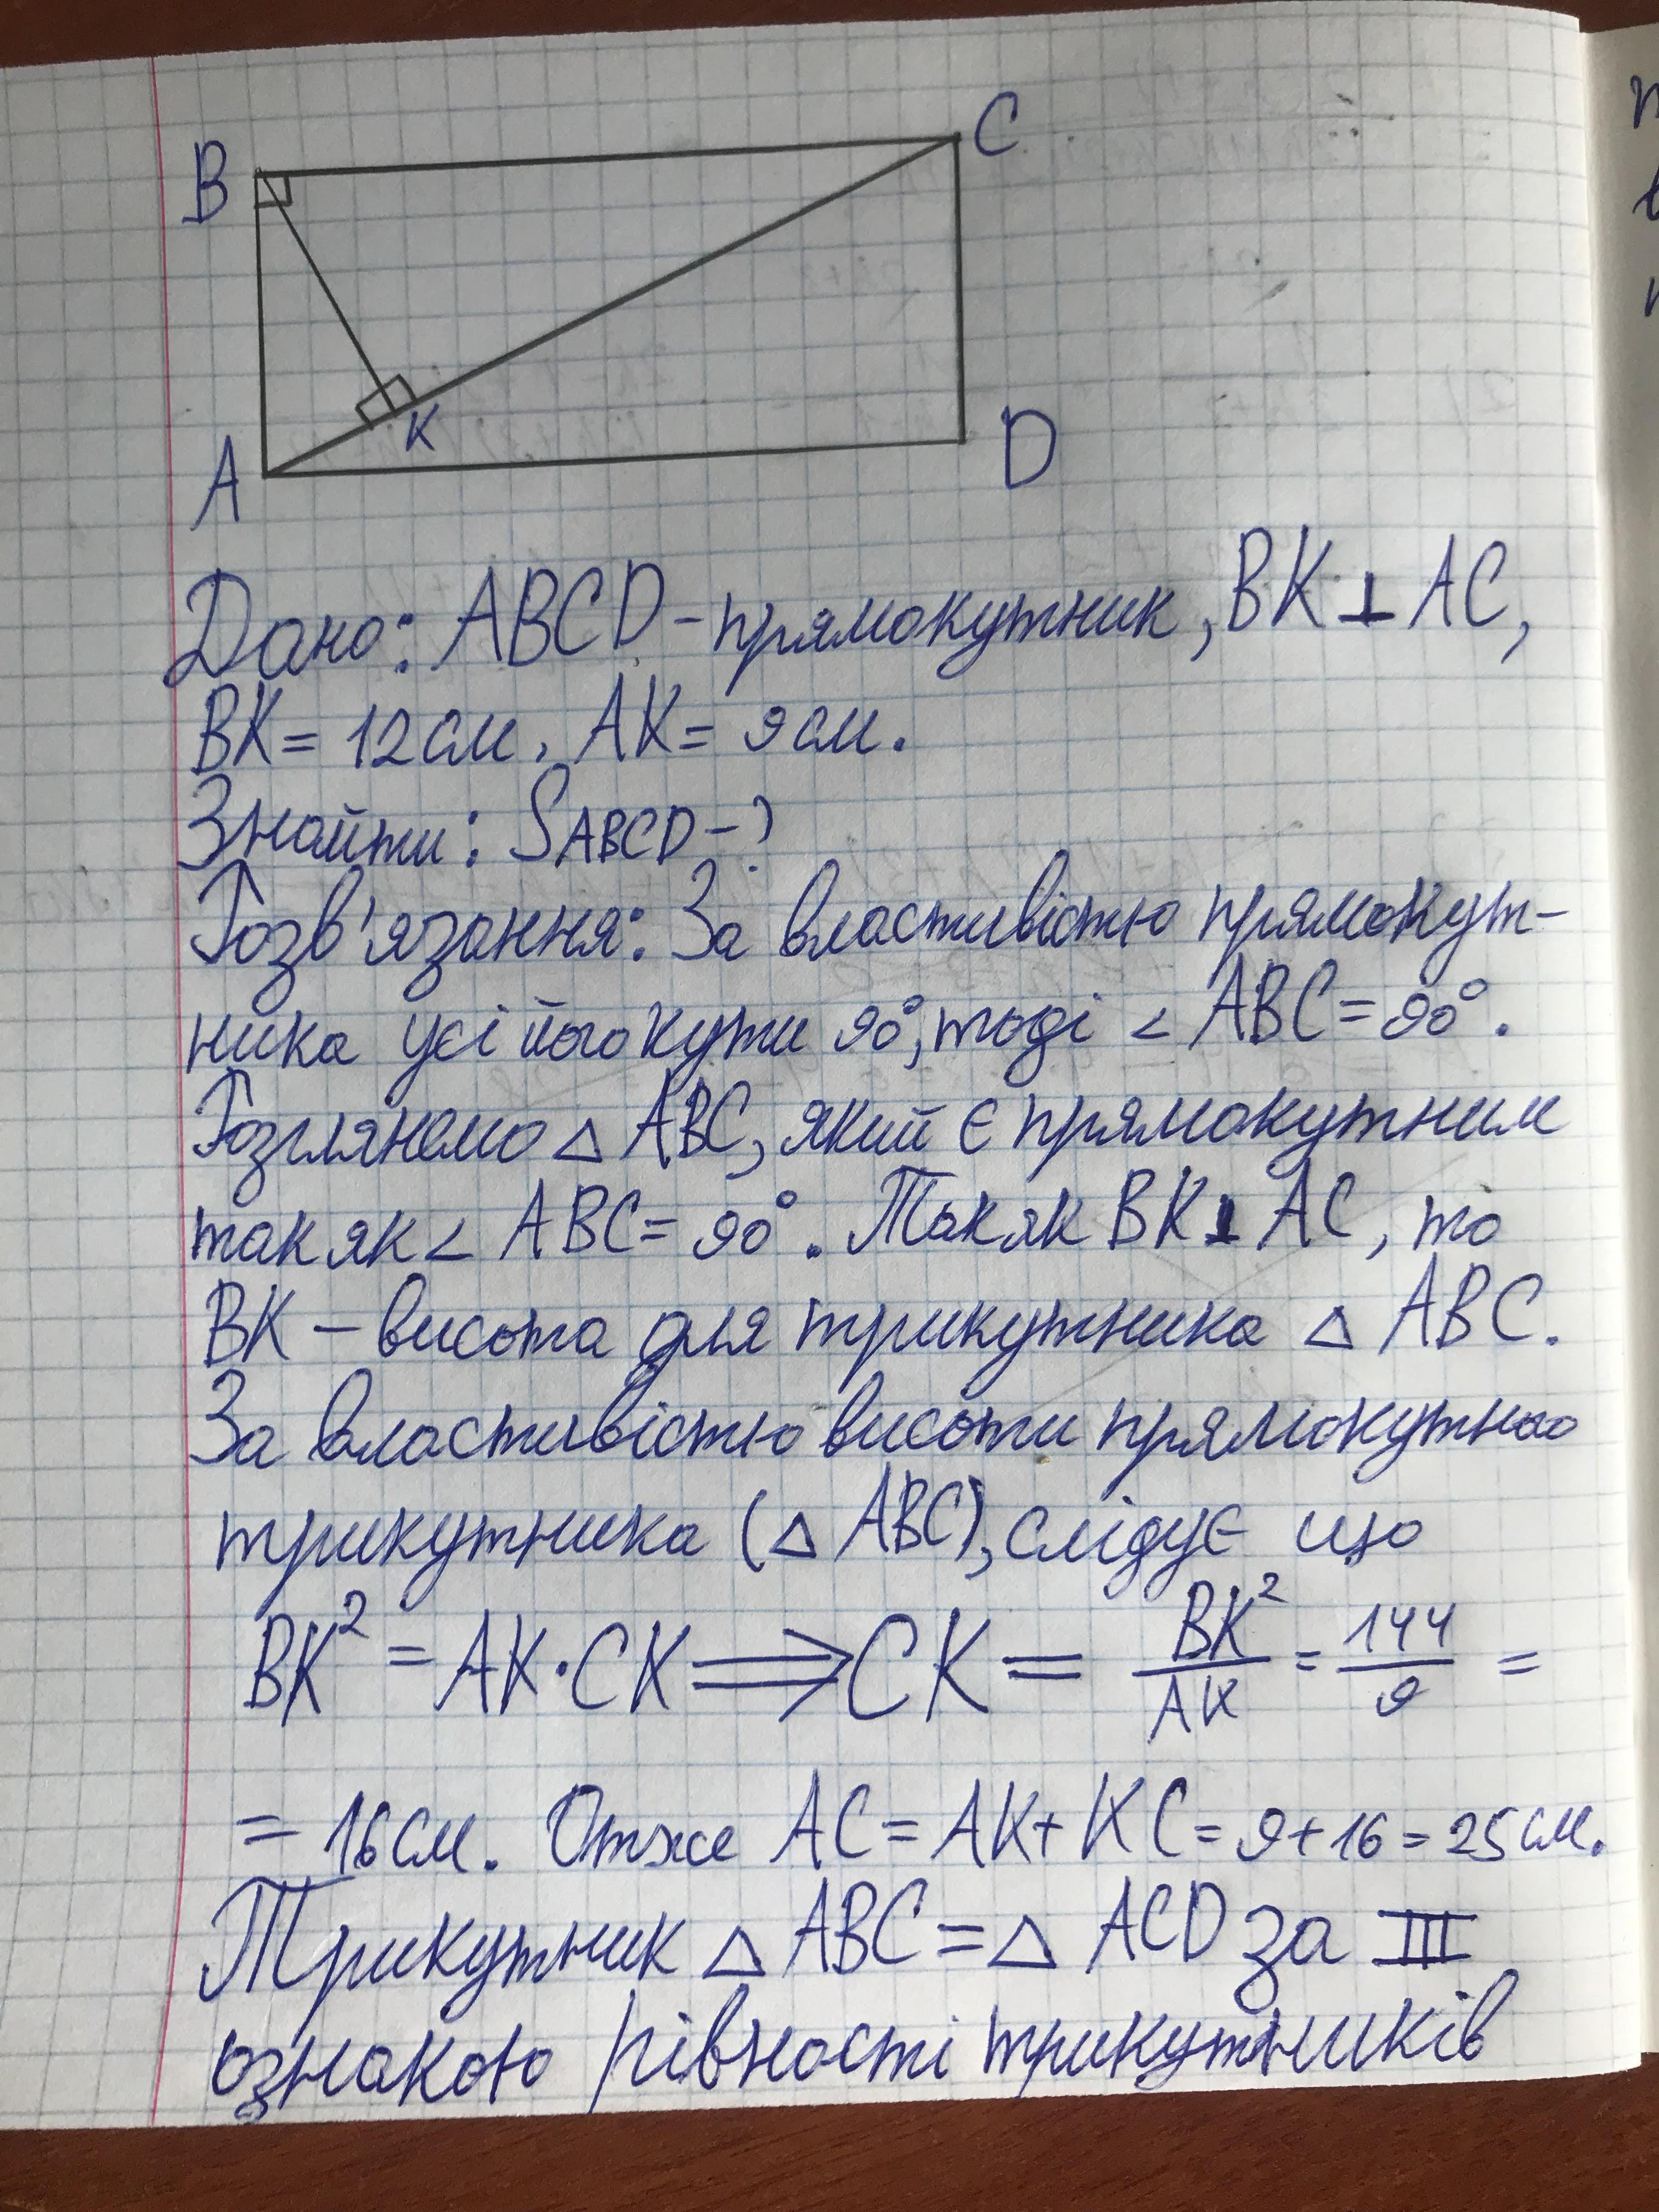 B
C
K
A
D
Дано: ABCD – прямокутник, BK ⊥ AC,
BK = 12 см, AK = 9 см.
Знайти: SABCD – ?
Розв'язання: За властивістю прямокут-
ника усі його кути 90°, тоді < ABC = 90°.
Розглянемо △ ABC, який є прямокутним
так як < ABC = 90°. Так як BK ⊥ AC, то
BK – висота для трикутника △ ABC.
За властивістю висоти прямокутного
трикутника (△ ABC), слідує що
BK² = AK·CK ⟹ CK = BK²/AK = 144/9 =
= 16 см. Отже AC = AK + KC = 9 + 16 = 25 см.
Трикутник △ ABC = △ ACD за III
ознакою рівності трикутників